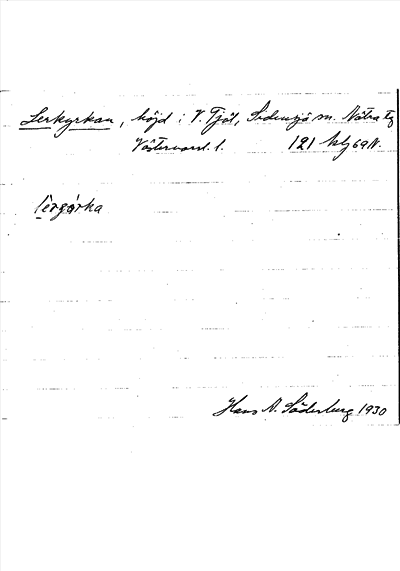 Lerkyrkan, höjd i V. Fjöl, Sidensjö sn. Nätra tg
Västernorrl. l. 121 Mj 69 N.
lèrgərka
Hans N. Söderberg 1930